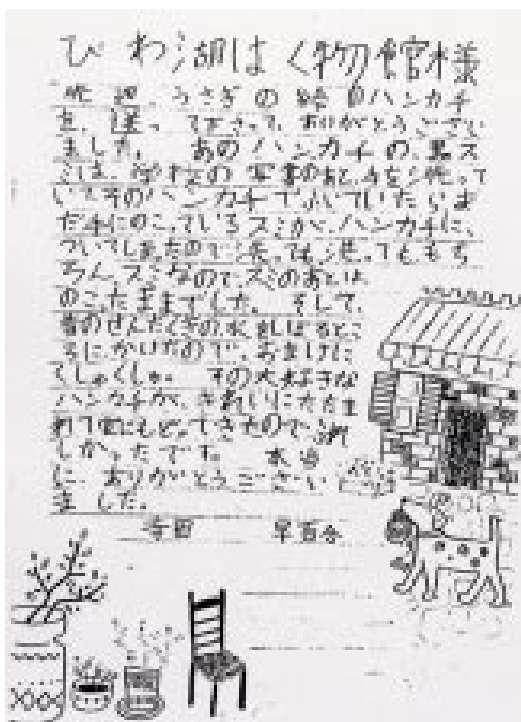 びわ湖はく物館様
先週、うさぎの絵のハンカチ
を、送って下さって、ありがとうござい
ました。 あのハンカチの、黒ス
ミは、学校の書写のあと、手を洗って
いてそのハンカチでふいていたらま
だ手にのこっているスミが、ハンカチに、
ついてしまったので、洗っても洗ってももち
ろん、スミなので、スミのあとは
のこったままでした。 そして、
昔のせんたくきの、水をしぼるとこ
ろに、かけたので、おまけに
くしゃくしゃ。 その大好きな
ハンカチが、きれいにたたま
れて家にもどってきたので、
しかったです。 本当
に、ありがとうござい
ました。
寺田 早百合